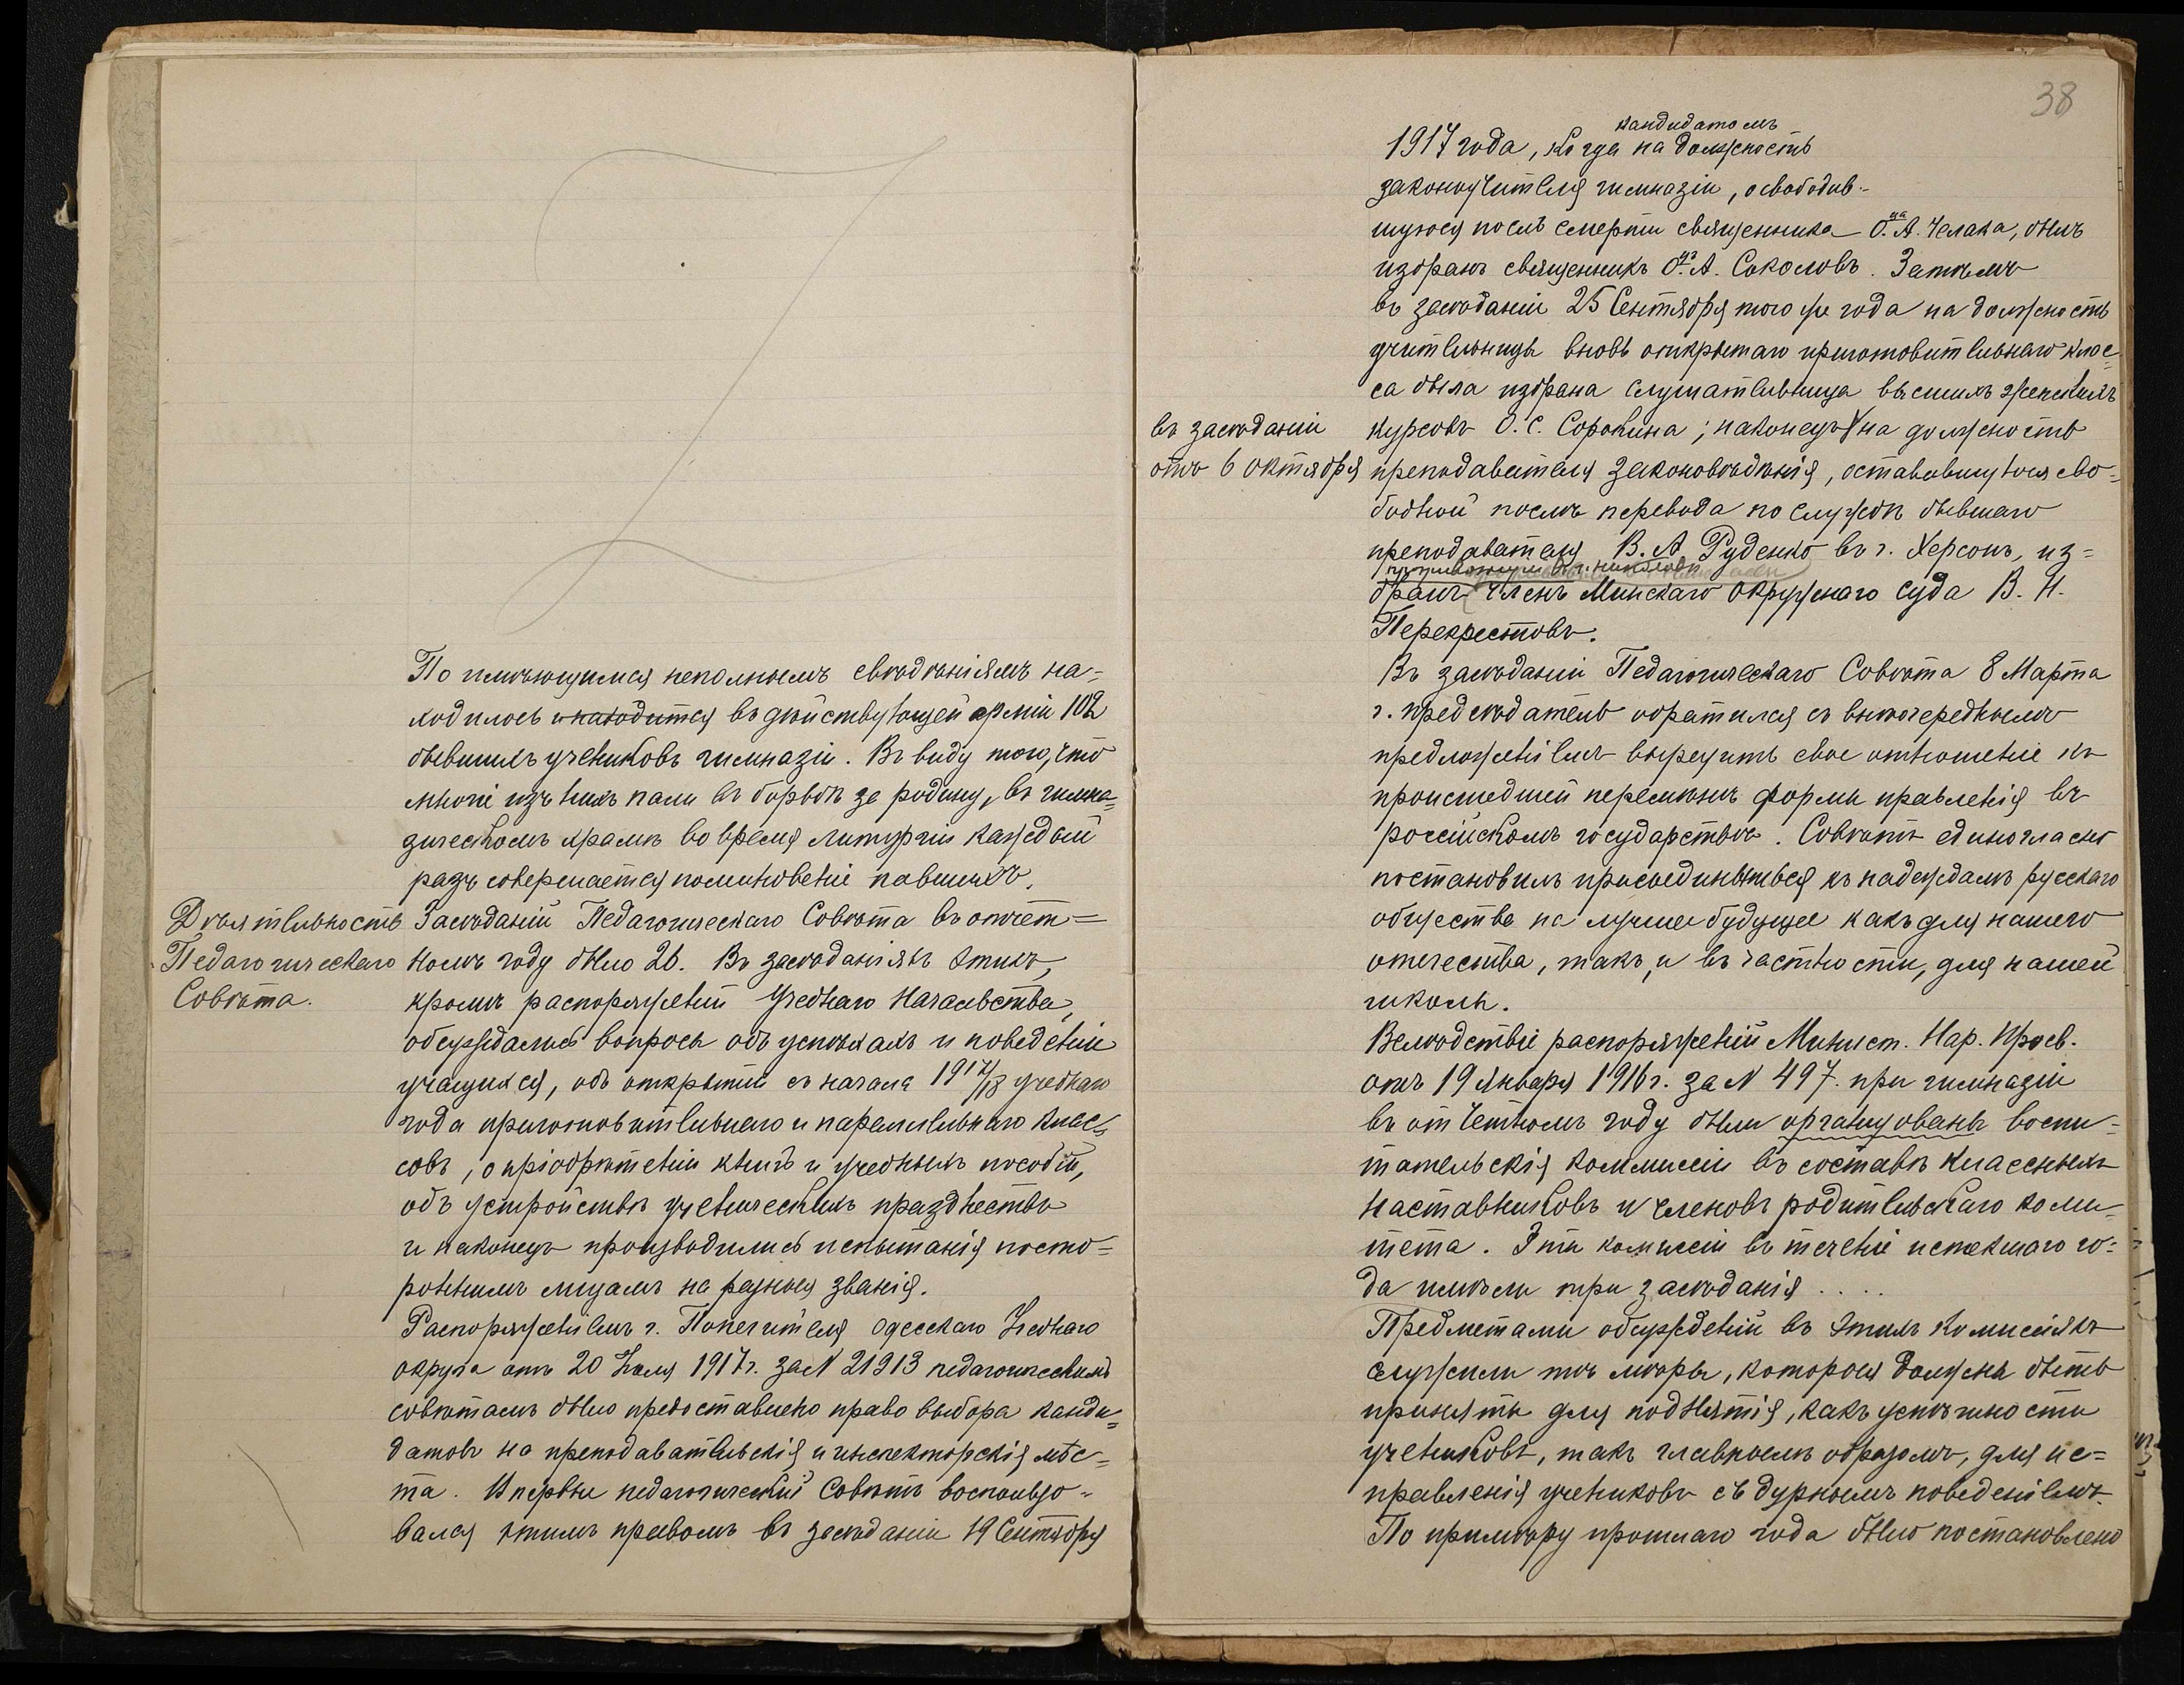 По имѣющимся неполнымъ свѣдѣніямъ на=
ходилось и находится въ дѣйствующей арміи 102
бывшихъ учениковъ гимназіи. Въ виду того, что
многіе изъ нихъ пали въ борьбѣ за родину, въ гимна=
зическомъ храмѣ во время литургіи каждый
разъ совершается поминовеніе павшихъ.
Дѣятельность
Педагогическаго
Совѣта.
Засѣданій Педагогическаго Совѣта въ отчет=
номъ году было 26. Въ засѣданіяхъ этихъ,
кромѣ распоряженій Учебнаго Начальства,
обсуждались вопросы объ успѣхахъ и поведеніи
учащихся, объ открытіи съ начала 1917/18 учебнаго
года приготовительнаго и параллельнаго клас=
совъ, о пріобрѣтеніи книгъ и учебныхъ пособій,
объ устройствѣ ученическихъ празднествъ
и наконецъ производились испытанія посто=
роннимъ лицамъ на разныя званія.
Распоряженіемъ г. Попечителя Одесскаго Учебнаго
округа отъ 20 Іюля 1917 г. за N 21913 педагогическимъ
совѣтамъ было предоставлено право выбора канди=
датовъ на преподавательскія и инспекторскія мѣс=
та. Впервые педагогическій Совѣтъ воспользо=
вался этимъ правомъ въ засѣданіи 19 Сентября
38
кандидатомъ
1917 года, когда на должность
законоучителя гимназіи, освободив-
шуюся послѣ смерти священника О.ца А. Челака, былъ
избранъ священникъ О.цъ А. Соколовъ. Затѣмъ
въ засѣданіи 25 Сентября того же года на должность
учительницы вновь открытаго приготовительнаго клас=
са была избрана слушательница высшихъ женскихъ
въ засѣданіи
отъ 6 октября
курсовъ О. С. Сорокина; наконецъ на должность
преподавателя законовѣдѣнія, остававшуюся сво=
бодной послѣ перевода по службѣ бывшаго
преподавателя В. А. Руденко въ г. Херсонъ, из=
бранъ членъ Минскаго окружнаго суда В. Н.
Перекрестовъ.
Въ засѣданіи Педагогическаго Совѣта 8 Марта
г. предсѣдатель обратился съ внѣочереднымъ
предложеніемъ выразить свое отношеніе къ
происшедшей перемѣнѣ формы правленія въ
россійскомъ государствѣ. Совѣтъ единогласно
постановилъ присоединиться къ надеждамъ русскаго
общества на лучшее будущее какъ для нашего
отечества, такъ, и въ частности, для нашей
школы.
Вслѣдствіе распоряженій Минист. Нар. Просв.
отъ 19 Января 1916 г. за N 497. при гимназіи
въ отчетномъ году были организованы воспи=
тательскія коммиссіи въ составѣ классныхъ
наставниковъ и членовъ родительскаго коми=
тета. Эти комиссіи въ теченіе истекшаго го=
да имѣли три засѣданія . . . .
Предметами обсужденій въ этихъ комиссіяхъ
служили тѣ мѣры, которыя должны быть
приняты для поднятія, какъ успѣшности
учениковъ, такъ главнымъ образомъ, для ис=
правленія учениковъ съ дурнымъ поведеніемъ.
По примѣру прошлаго года было постановлено